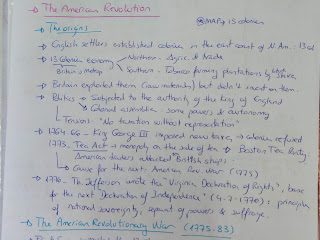 → The American Revolution
→ The origins
@ MAP of 13 colonies
→ English settlers established colonies in the east coast of N. Am.: 13 col
→ 13 Colonies economy → Northern → Agric. & trade
→ Southern → Tobacco farming plantations by slaves
→ Britain exploited them (raw materials) but didn't
→ Politics → Subjected to the authority of the king of England
→ Colonial assemblies: some powers & autonomy
→ Taxes: "No taxation without representation"
→ 1764-66 → King George III imposed new taxes → colonies refused
→ 1773. Tea Act → monopoly on the sale of tea → Boston Tea Party
American traders British ships
→ Cause for the next American Rev. War (1775)
→ 1776. Th. Jefferson wrote the "Virginia Declaration of Rights", base
for the next Declaration of Independence (4-7-1776): principles
of national sovereignty, separat. of powers & suffrage.
→ The American Revolutionary War (1775-83)